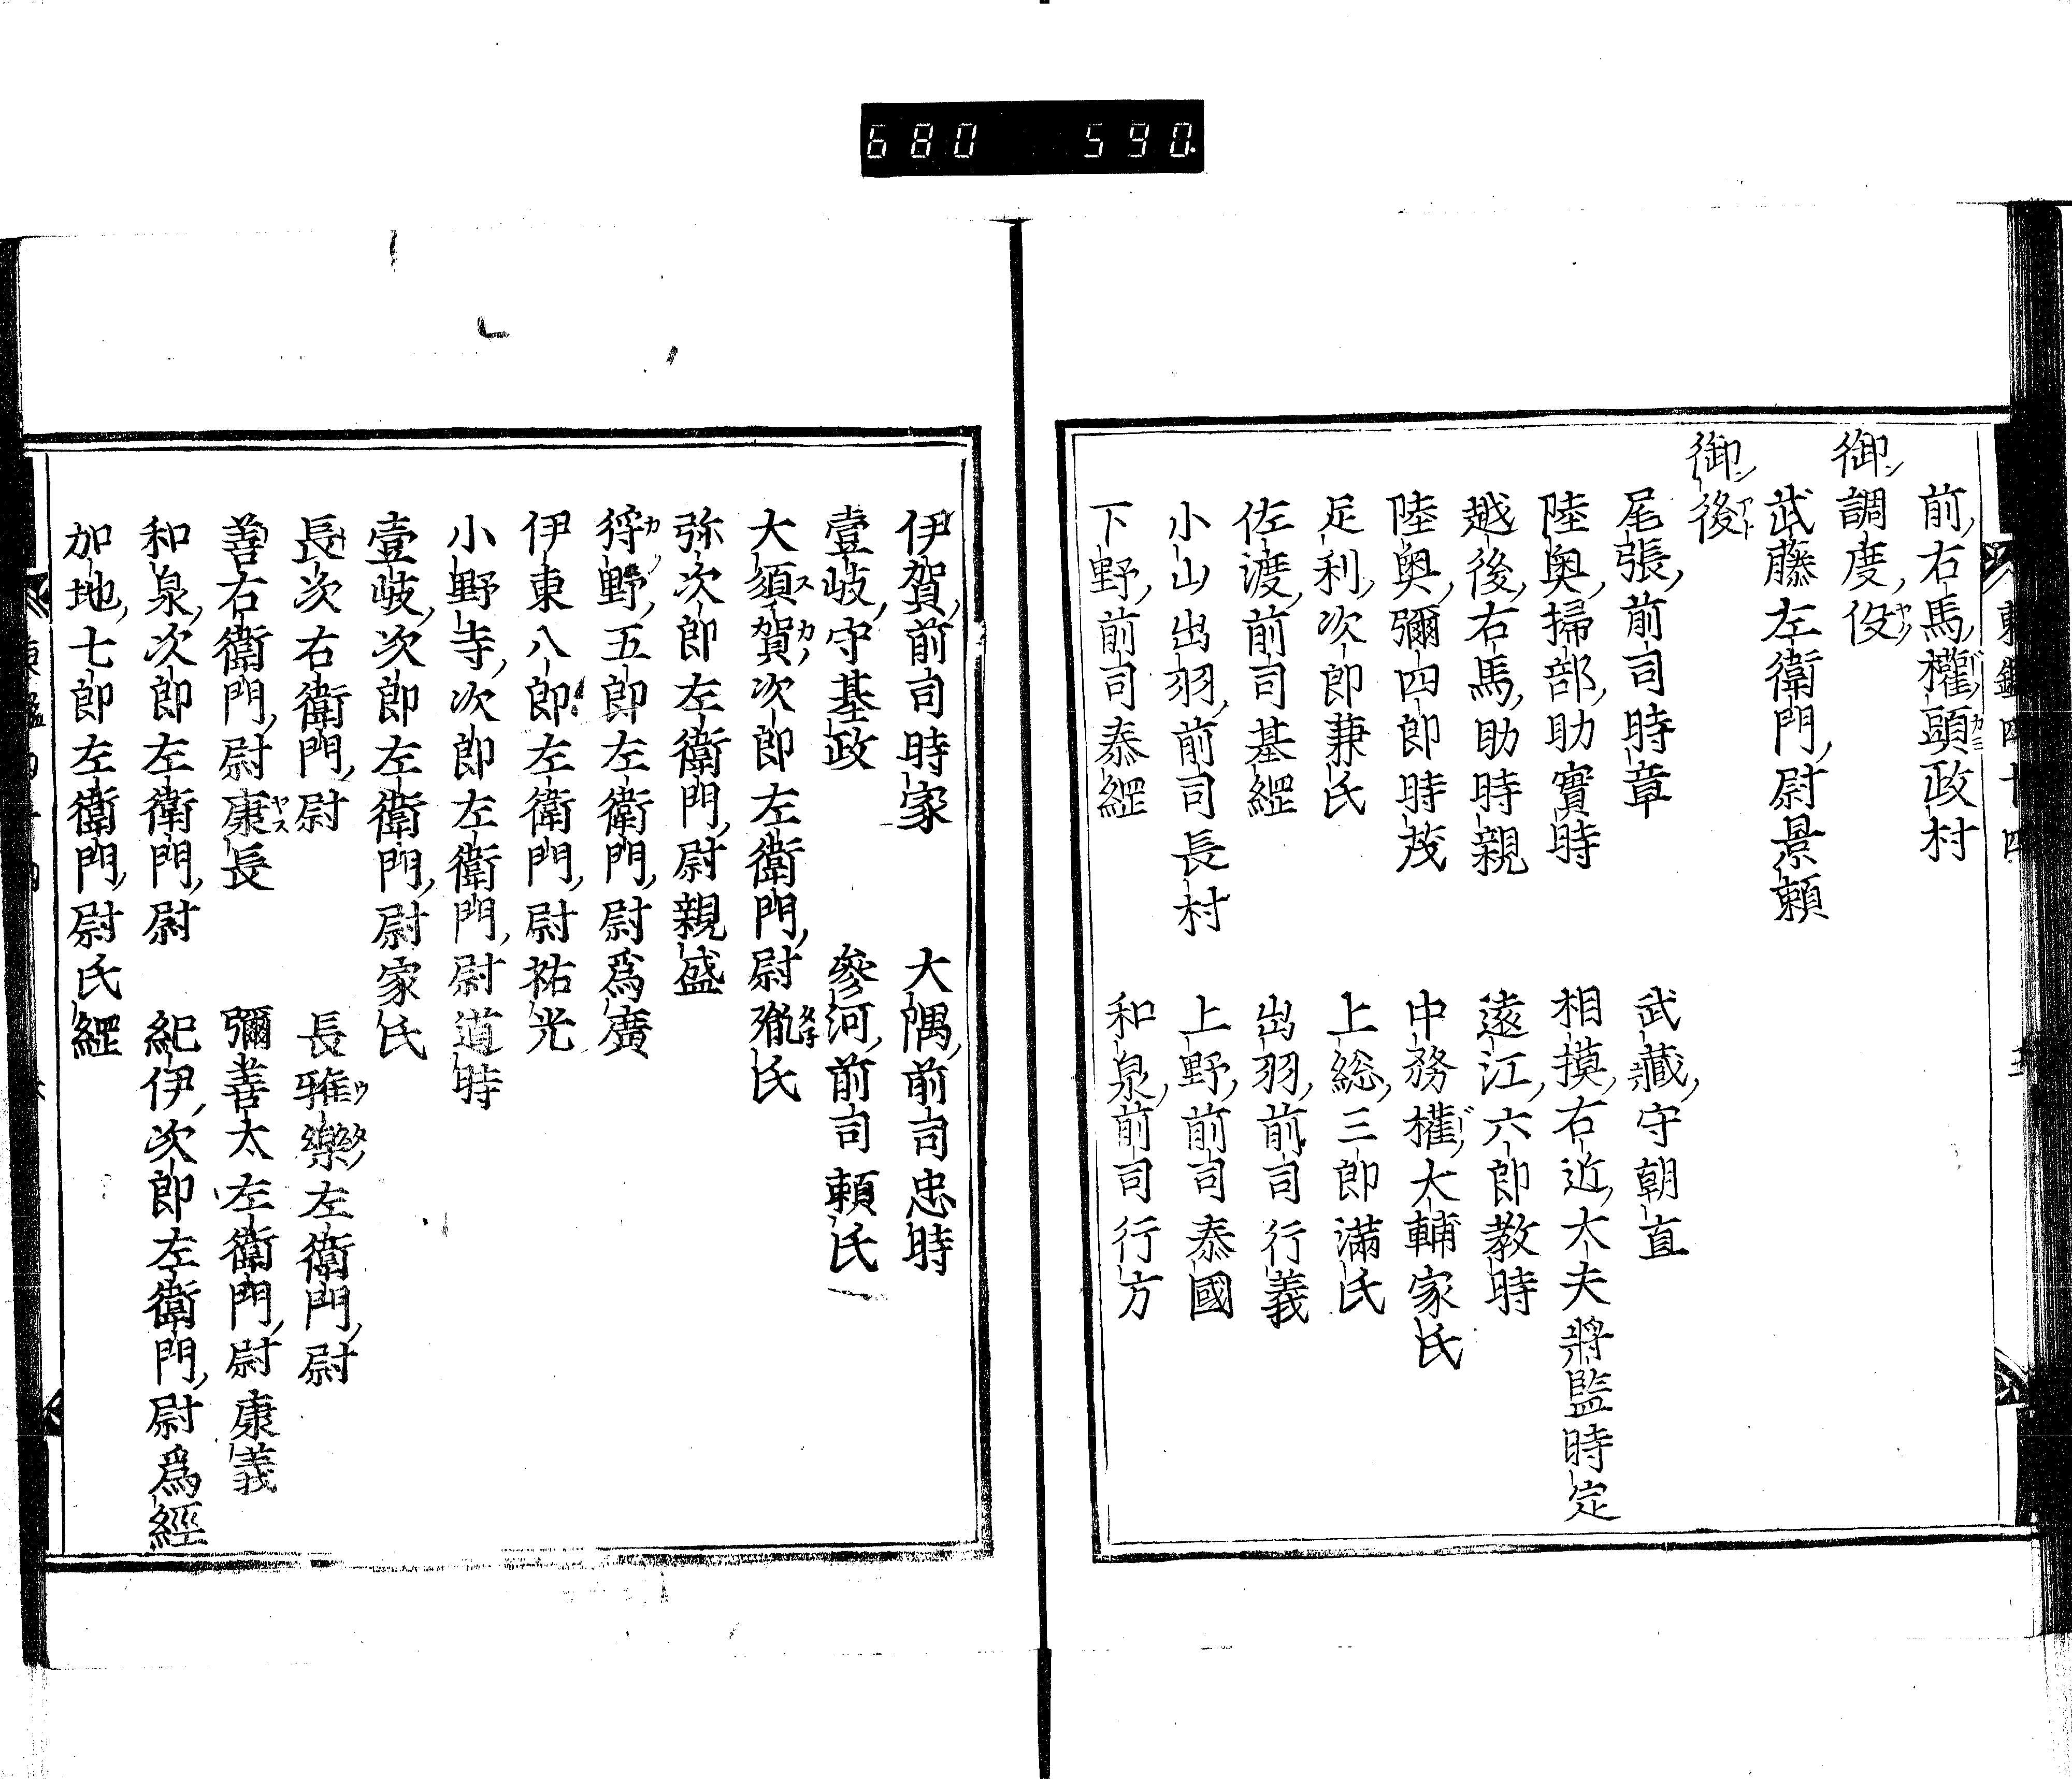 680 590.
前右馬權頭政村
御調度役
武藤左衛門尉景頼
御後
尾張前司時章 武藏守朝直
陸奥掃部助實時 相摸右近太夫將監時定
越後右馬助時親 遠江六郎教時
陸奥彌四郎時茂 中務權太輔家氏
足利次郎兼氏 上総三郎滿氏
佐渡前司基經 出羽前司行義
小山出羽前司長村 上野前司泰國
下野前司泰經 和泉前司行方
伊賀前司時家 大隅前司忠時
壹岐守基政 參河前司頼氏
大須賀次郎左衛門尉胤氏
弥次郎左衛門尉親盛
狩野五郎左衛門尉爲廣
伊東八郎左衛門尉祐光
小野寺次郎左衛門尉道時
壹岐次郎左衛門尉家氏
長次右衛門尉 長雅樂左衛門尉
善右衛門尉康長 彌善太左衛門尉康義
和泉次郎左衛門尉 紀伊次郎左衛門尉爲經
加地七郎左衛門尉氏經